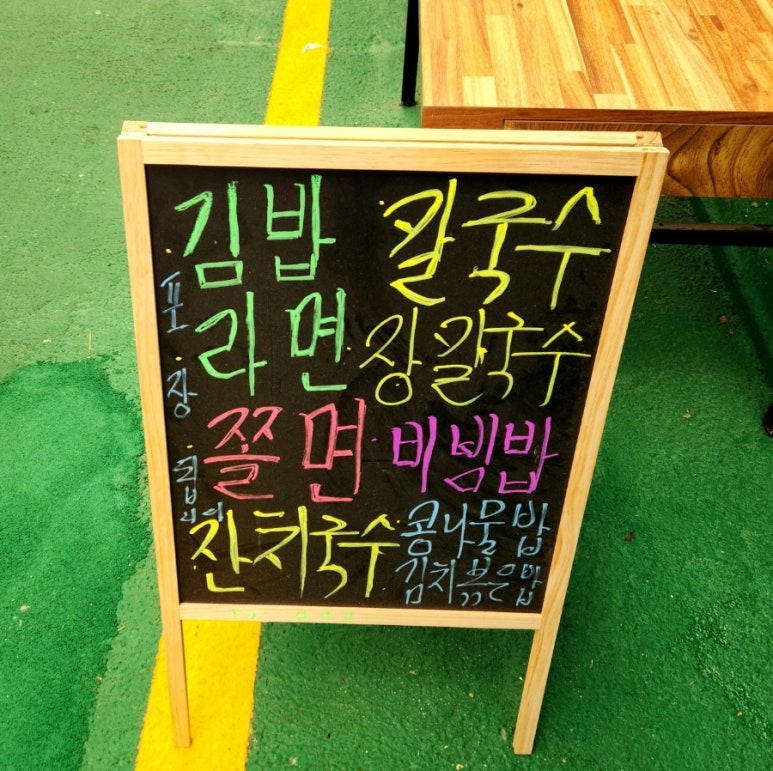 김밥 칼국수
라면 장칼국수
쫄면 비빔밥
잔치국수 콩나물밥
김치볶은밥
포장